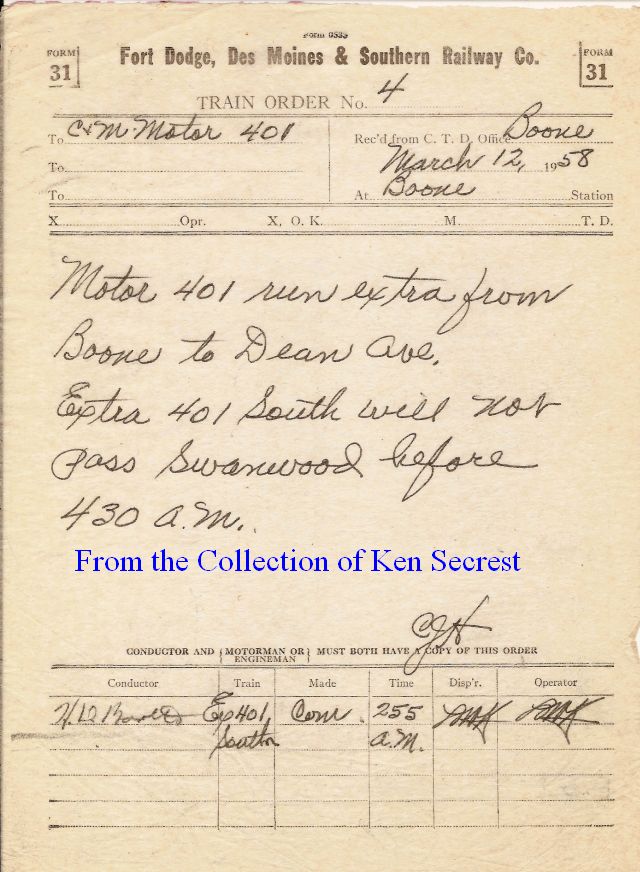 Form 0535
FORM 31 Fort Dodge, Des Moines & Southern Railway Co. FORM 31
TRAIN ORDER No. 4
To C&M Motor 401 Rec'd from C. T. D. Office Boone
To March 12, 1958
To At Boone Station
X Opr. X, O. K. M. T. D.
Motor 401 run extra from
Boone to Dean Ave.
Extra 401 South will not
pass Swanwood before
430 A.M.
From the Collection of Ken Secrest
CJH
CONDUCTOR AND { MOTORMAN OR ENGINEMAN } MUST BOTH HAVE A COPY OF THIS ORDER
Conductor Train Made Time Disp'r. Operator
Ex 401 Com 255
South A.M.